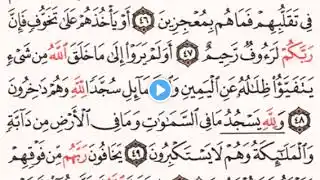 فِي تَقَلُّبِهِمْ فَمَا هُم بِمُعْجِزِينَ ٤٦ أَوْ يَأْخُذَهُمْ عَلَىٰ تَخَوُّفٍ فَإِنَّ
رَبَّكُمْ لَرَءُوفٌ رَّحِيمٌ ٤٧ أَوَلَمْ يَرَوْا إِلَىٰ مَا خَلَقَ اللَّهُ مِن شَيْءٍ
يَتَفَيَّؤُا ظِلَالُهُ عَنِ الْيَمِينِ وَالشَّمَائِلِ سُجَّدًا لِّلَّهِ وَهُمْ دَاخِرُونَ
٤٨ وَلِلَّهِ يَسْجُدُ مَا فِي السَّمَاوَاتِ وَمَا فِي الْأَرْضِ مِن دَابَّةٍ
وَالْمَلَائِكَةُ وَهُمْ لَا يَسْتَكْبِرُونَ ٤٩ يَخَافُونَ رَبَّهُم مِّن فَوْقِهِمْ